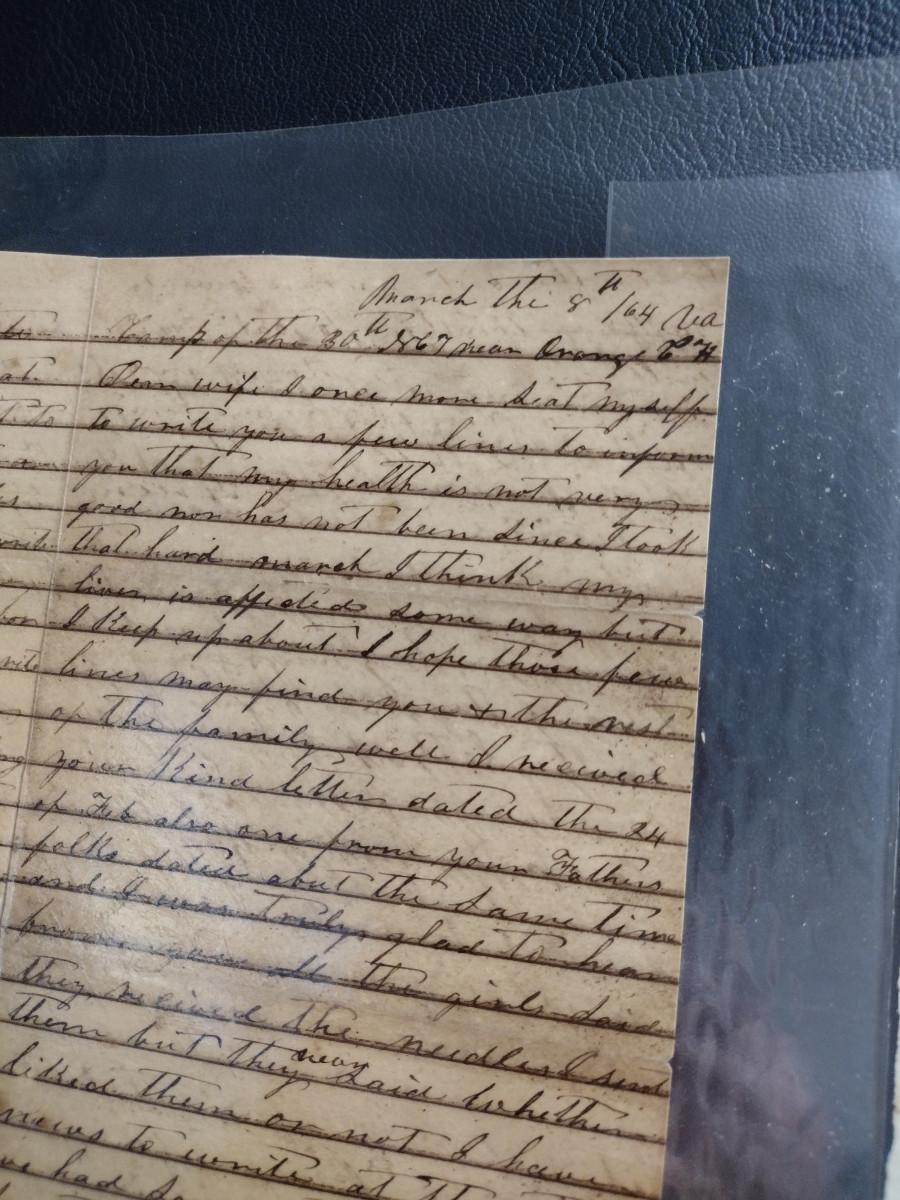 March the 8th /64 Va
Camp of the 30th N C T near Orange C H
Dear wife I once more seat myself
to write you a few lines to inform
you that my health is not very
good nor has not been since I took
that hard march I think my
liver is affected some way but
I Keep up about I hope those few
lines may find you & the rest
of the family well I received
your Kind letter dated the 24
of Feb also one from your Fathers
folks dated about the same time
and I was truly glad to hear
from you all the girls said
they received the needles I send
them but they never said whether
liked them or not I have
news to write at
had